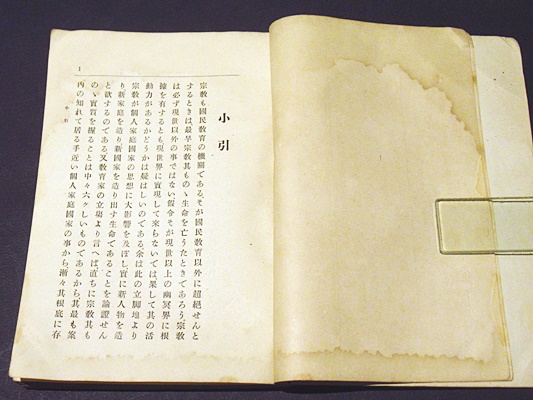 小引
宗教も國民教育の機關である、そが國民教育以外に超絶せんと
するときは、最早宗教其ものゝ生命を亡うたときであろう、宗教
は必ず現世以外の事ではない、假令そが現世以上の幽冥界に根
據を有するとも、現世界に實現して來らないでは、果して其の活
動力があるかどうかは疑はしいのである、余は此の立脚地より
宗教が個人家庭國家の思想に大影響を及ぼし、實に新人物を造
り新家庭を造り新國家を造り出す生命であることを論證せん
と欲するのである、又教育家の立場より言へば、直ちに宗教其も
のゝ實質を握ることは中々六ケしいものであるから、其最も案
内の知れて居る手近い個人家庭國家の事から、漸々其根底に存
小引
1